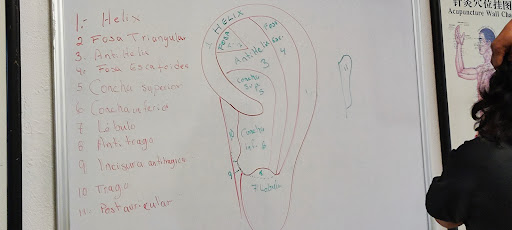 1. Helix
2 Fosa Triangular
3. AntiHelix
4. Fosa Escafoidea
5 Concha superior
6 Concha inferior
7 Lóbulo
8 Antitrago
9 Incisura antitragica
10 Trago
11. Postauricular
HELIX
Fosa
Post.
AntiHelix
3
4
Concha
sup
5
Concha
inf. 6
10
9
8
7. Lobulo
针灸穴位挂图
Acupuncture Wall Cha